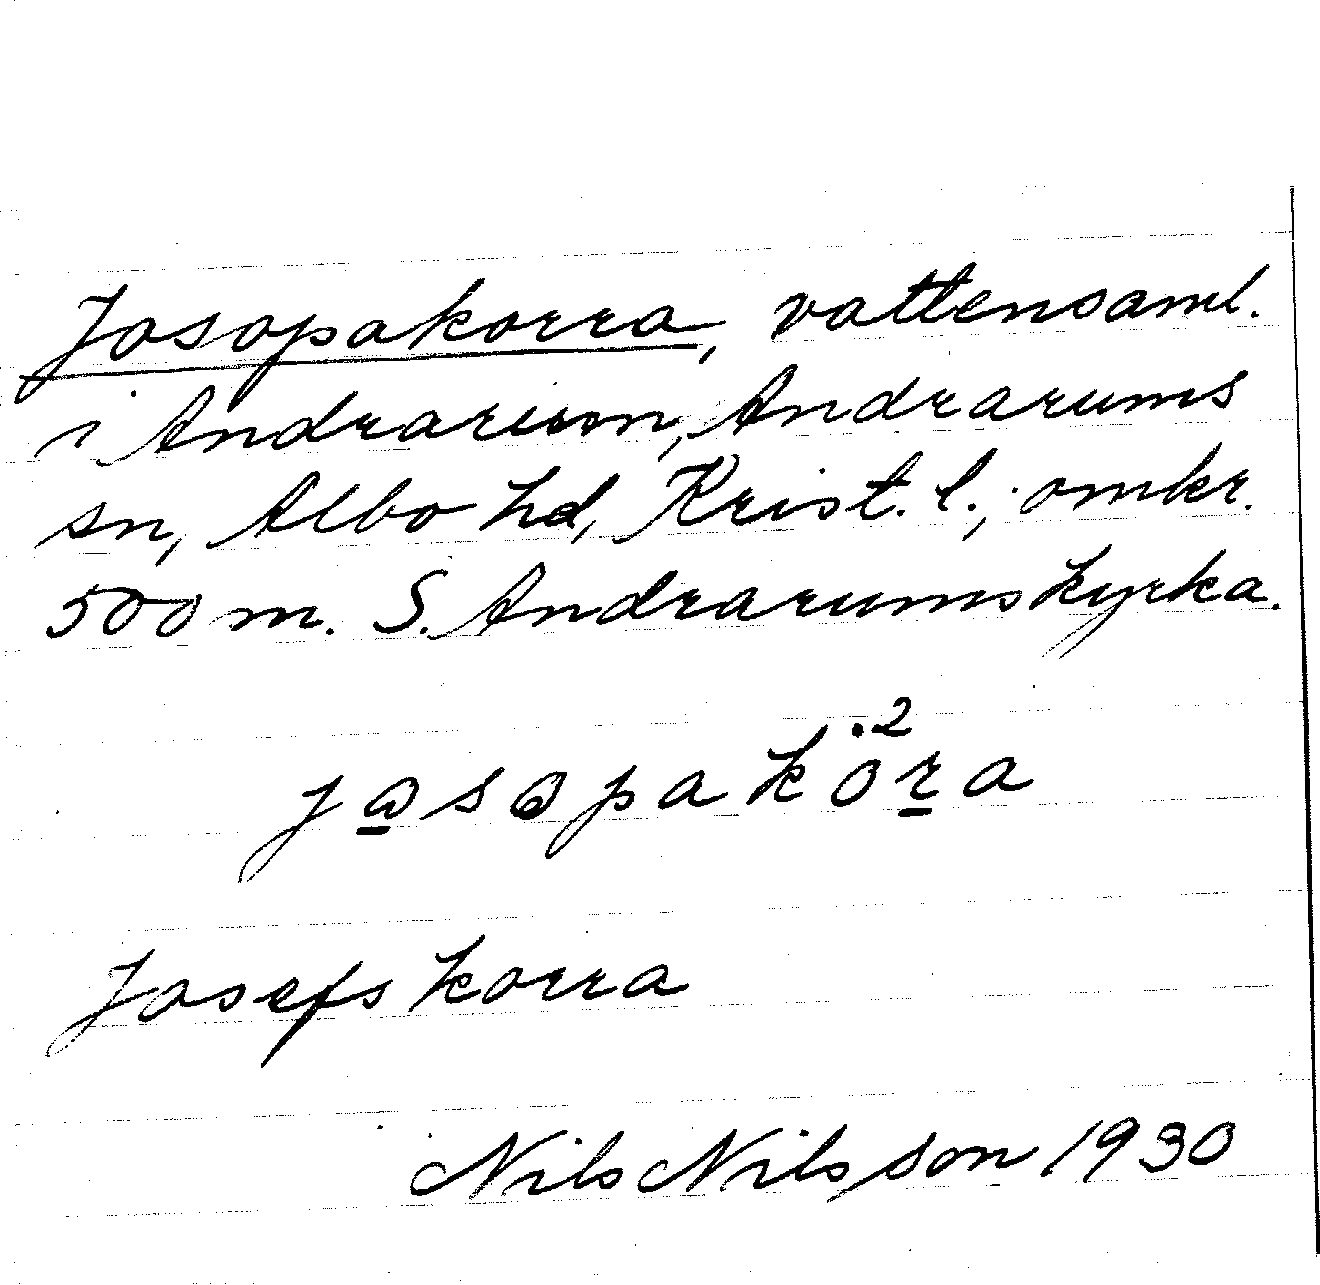 Josopakorra, vattensaml.
i Andrarum, Andrarums
sn, Albo hd, Krist. l., omkr.
500 m. S. Andrarums kyrka.
josopakȯ²ra
Josefs korra
Nils Nilsson 1930